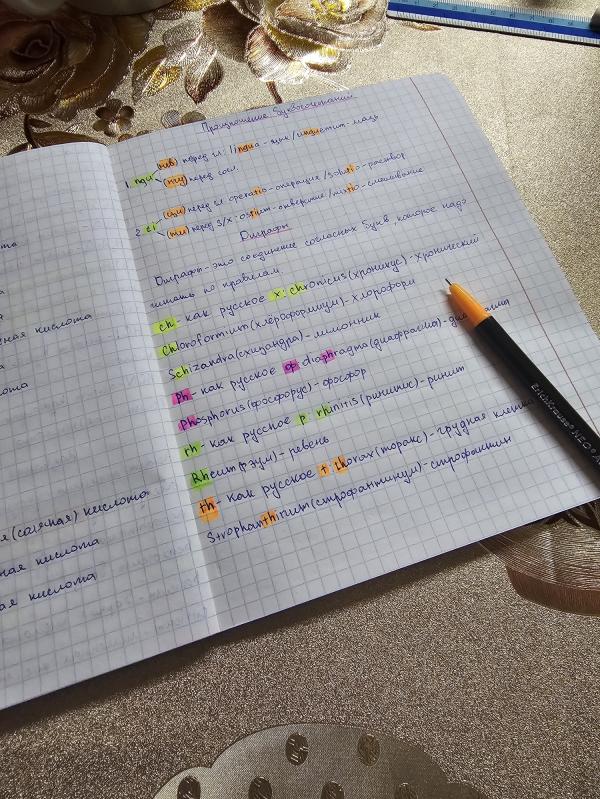 Произношение буквосочетаний
1. ngu (нгв) перед гл: lingua - язык / unguentum - мазь
(нгу) перед согл.
2. ti (ци) перед гл operatio - операция / solutio - раствор
(ти) перед s/x: ostium - отверстие / mixtio - смешивание
Диграфы
Диграфы - это соединение согласных букв, которое надо
читать по правилам.
ch - как русское х: chronicus (хроникус) - хронический
Chloroformium (хлёроформиум) - хлороформ
Schizandra (схизандра) - лимонник
ph - как русское ф: diaphragma (диафрагма) -
Phosphorus (фосфорус) - фосфор
rh - как русское р: rhinitis (ринитис) - ринит
Rheum (рэум) - ревень
th - как русское т: thorax (торакс) - грудная клетка
Strophanthinum (строфантинум) - строфантин
кислота
я (соляная) кислота
ная кислота
ая кислота
ErichKrause® NEO®